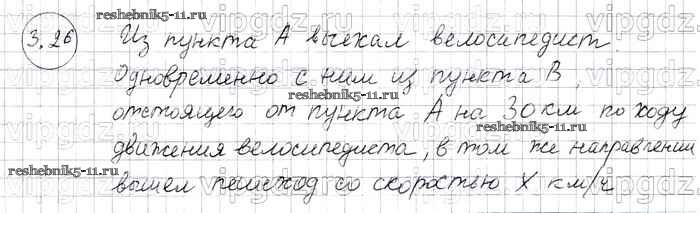 reshebnik5-11.ru
3.26 Из пункта А выехал велосипедист.
Одновременно с ним из пункта В,
reshebnik5-11.ru
отстоящего от пункта А на 30 км по ходу
reshebnik5-11.ru
движения велосипедиста, в том же направлении
reshebnik5-11.ru
вышел пешеход со скоростью х км/ч
vipgdz